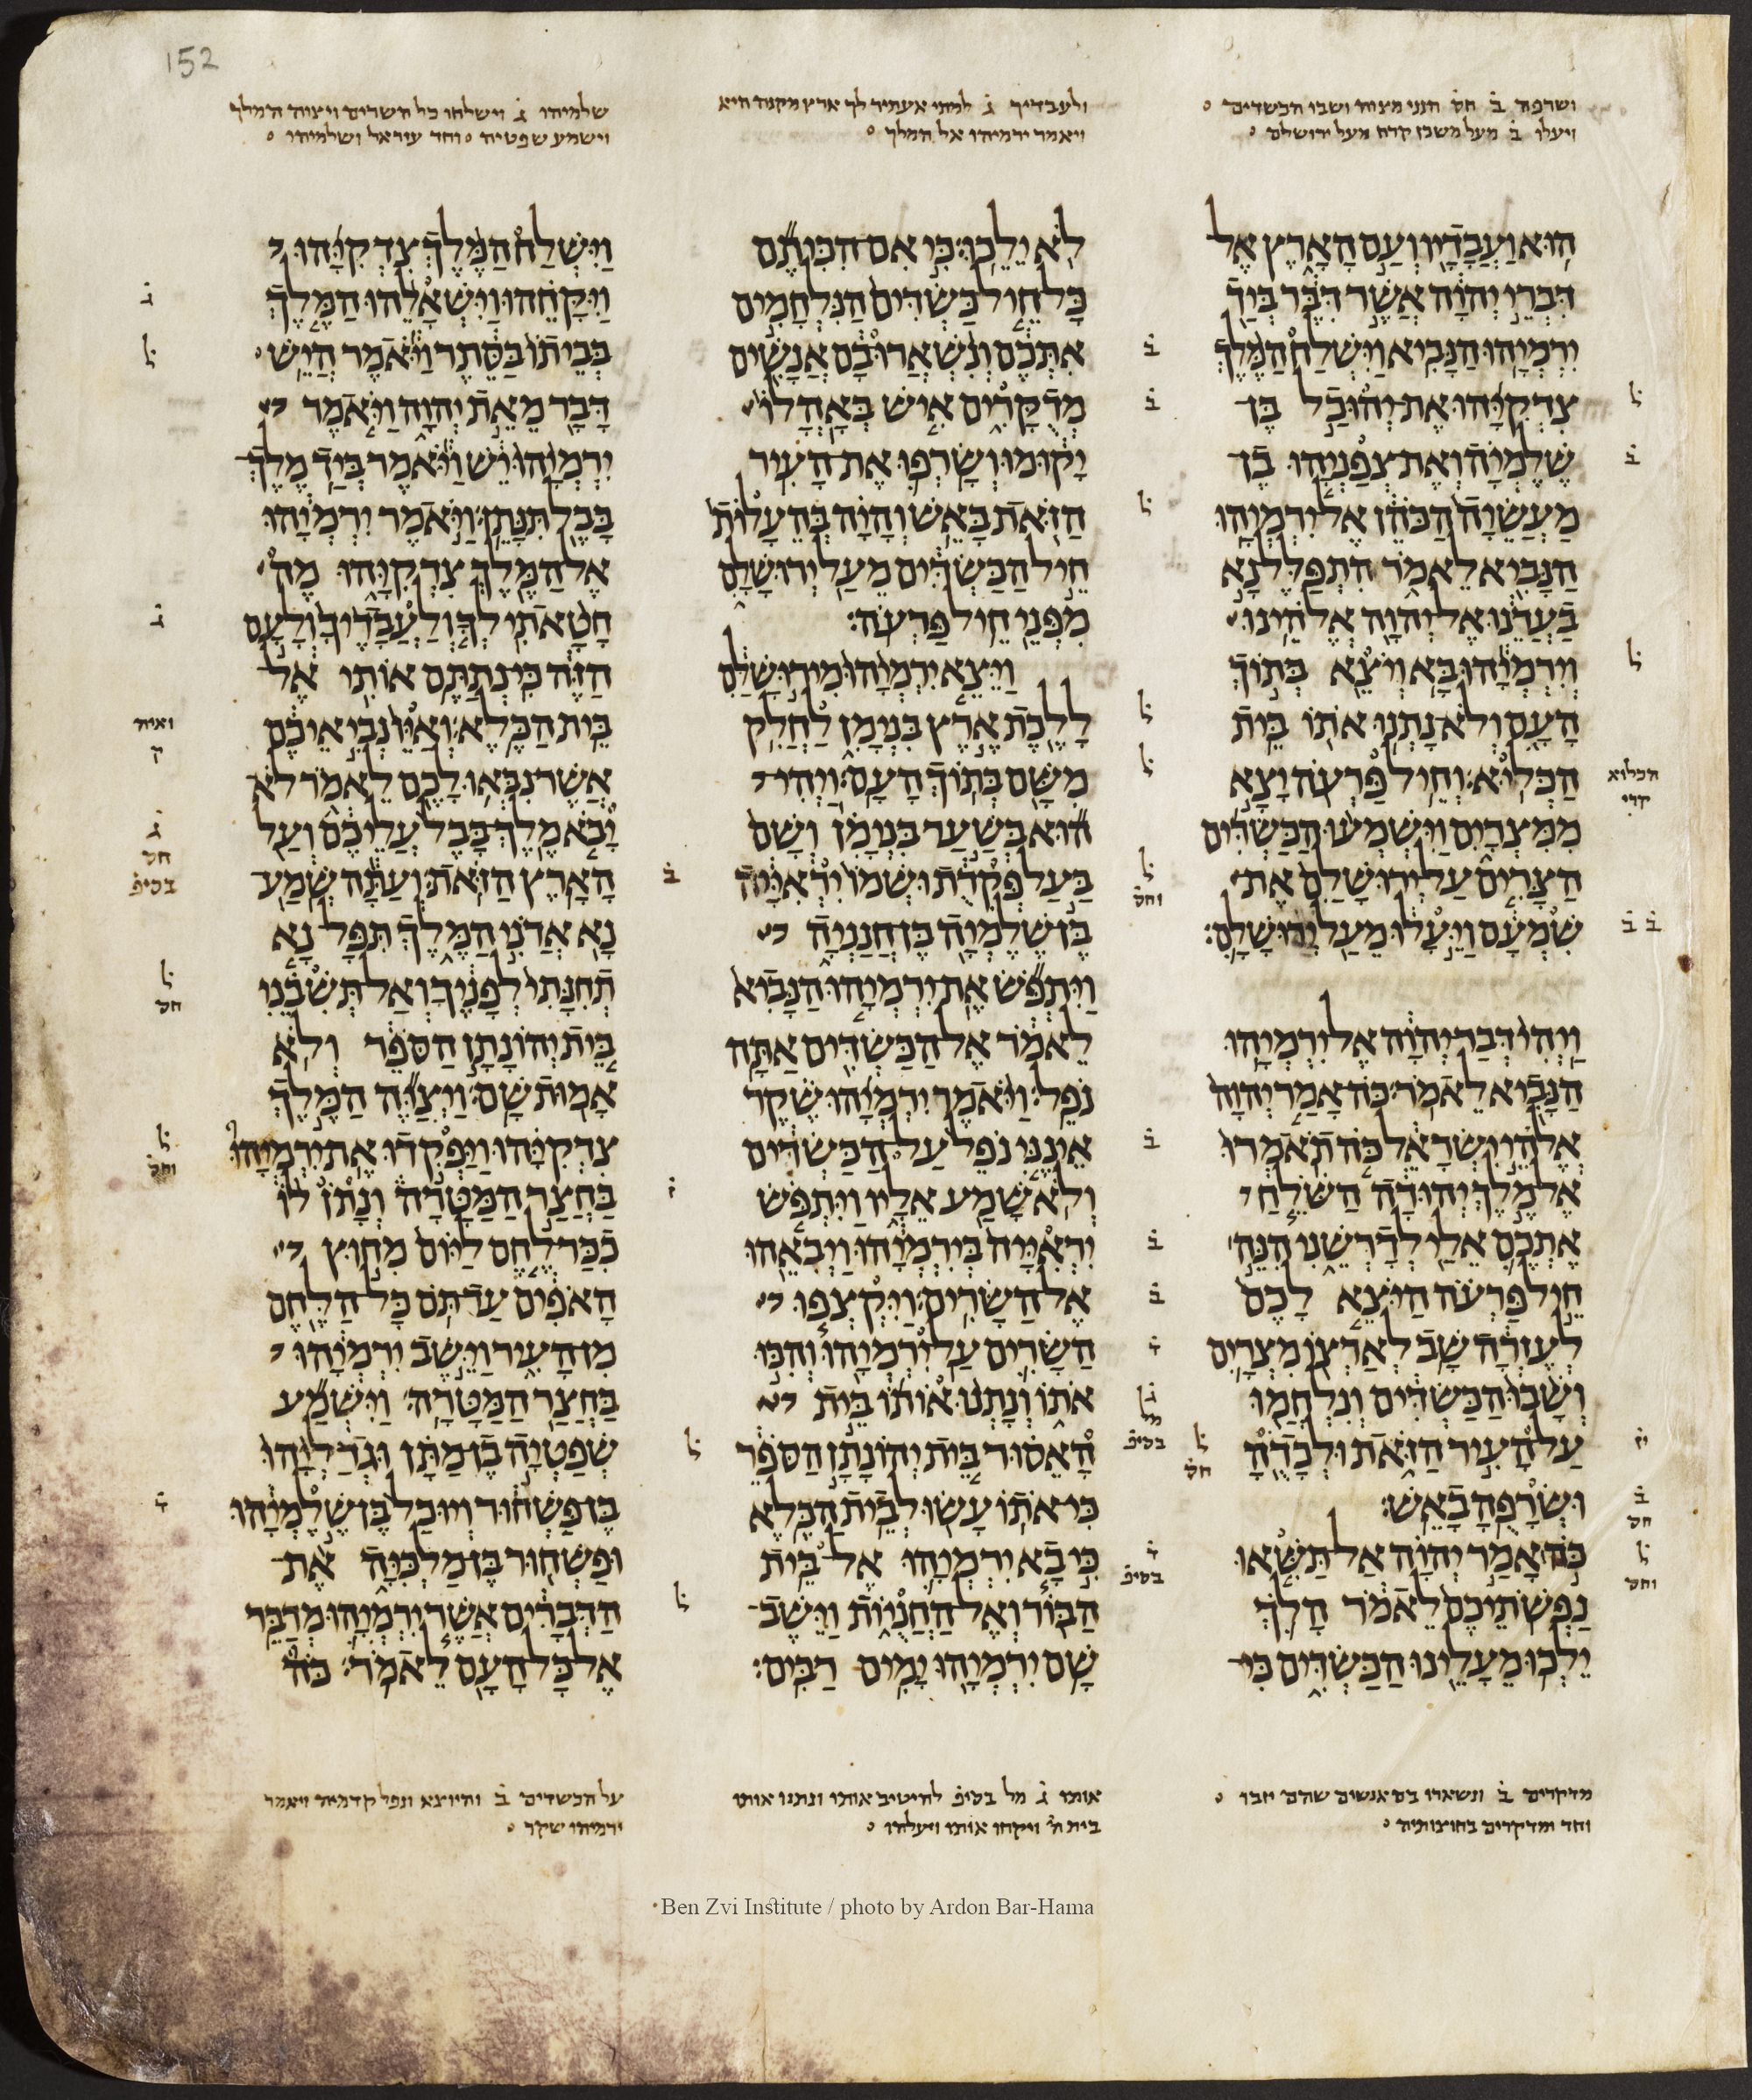 152
ושרפה ב חס הנני מצוה ושבו הכשדים
ויעלו ב מעל משכן קרח מעל ירושלם
ולעבדיך ג למתי אעתיר לך ארץ מקנה היא
ויאמר ירמיהו אל המלך
שלמיהו ג וישלחו כל השרים ויצוה המלך
וישמע שפטיה וחד עזראל ושלמיהו
הוא ועבדיו ועם הארץ אל
דברי יהוה אשר דבר ביד
ירמיהו הנביא וישלח המלך
צדקיהו את יהוכל בן
שלמיה ואת צפניהו בן
מעשיה הכהן אל ירמיהו
הנביא לאמר התפלל נא
בעדנו אל יהוה אלהינו
וירמיהו בא ויצא בתוך
העם ולא נתנו אתו בית
הכליא וחיל פרעה יצא
ממצרים וישמעו הכשדים
הצרים על ירושלם את
שמעם ויעלו מעל ירושלם׃
ויהי דבר יהוה אל ירמיהו
הנביא לאמר כה אמר יהוה
אלהי ישראל כה תאמרו
אל מלך יהודה השלח
אתכם אלי לדרשני הנה
חיל פרעה היצא לכם
לעזרה שב לארצו מצרים
ושבו הכשדים ונלחמו
על העיר הזאת ולכדה
ושרפה באש׃
כה אמר יהוה אל תשאו
נפשתיכם לאמר הלך
ילכו מעלינו הכשדים כי
לא ילכו כי אם הכיתם
כל חיל כשדים הנלחמים
אתכם ונשארו בם אנשים
מדקרים איש באהלו
יקומו ושרפו את העיר
הזאת באש והיה בהעלות
חיל הכשדים מעל ירושלם
מפני חיל פרעה׃
ויצא ירמיהו מירושלם
ללכת ארץ בנימן לחלק
משם בתוך העם ויהי
הוא בשער בנימן ושם
בעל פקדת ושמו יראייה
בן שלמיה בן חנניה
ויתפש את ירמיהו הנביא
לאמר אל הכשדים אתה
נפל ויאמר ירמיהו שקר
אינני נפל על הכשדים
ולא שמע אליו ויתפש
יראייה בירמיהו ויבאהו
אל השרים ויקצפו
השרים על ירמיהו והכו
אתו ונתנו אותו בית
האסור בית יהונתן הספר
כי אתו עשו לבית הכלא
כי בא ירמיהו אל בית
הבור ואל החניות וישב
שם ירמיהו ימים רבים׃
וישלח המלך צדקיהו
ויקחהו וישאלהו המלך
בביתו בסתר ויאמר היש
דבר מאת יהוה ויאמר
ירמיהו יש ויאמר ביד מלך
בבל תנתן ויאמר ירמיהו
אל המלך צדקיהו מה
חטאתי לך ולעבדיך ולעם
הזה כי נתתם אותי אל
בית הכלא ואיו נביאיכם
אשר נבאו לכם לאמר לא
יבא מלך בבל עליכם ועל
הארץ הזאת ועתה שמע
נא אדני המלך תפל נא
תחנתי לפניך ואל תשבני
בית יהונתן הספר ולא
אמות שם ויצוה המלך
צדקיהו ויפקדו את ירמיהו
בחצר המטרה ונתן לו
ככר לחם ליום מחוץ
האפים עד תם כל הלחם
מן העיר וישב ירמיהו
בחצר המטרה וישמע
שפטיה בן מתן וגדליהו
בן פשחור ויוכל בן שלמיהו
ופשחור בן מלכיה את
הדברים אשר ירמיהו מדבר
אל כל העם לאמר כה
הכלוא
קרי
ואיה
ק
מדקרים ב ונשארו בם אנשים שהם יזבו
וחד ומדקרים בחוצותיה
אותו ג מל בסיפ להיטיב אותו ונתנו אותו
בית ה ויקחו אותו ויעלהו
על הכשדים ב והיוצא ונפל קדמיה ויאמר
ירמיהו שקר
Ben Zvi Institute / photo by Ardon Bar-Hama